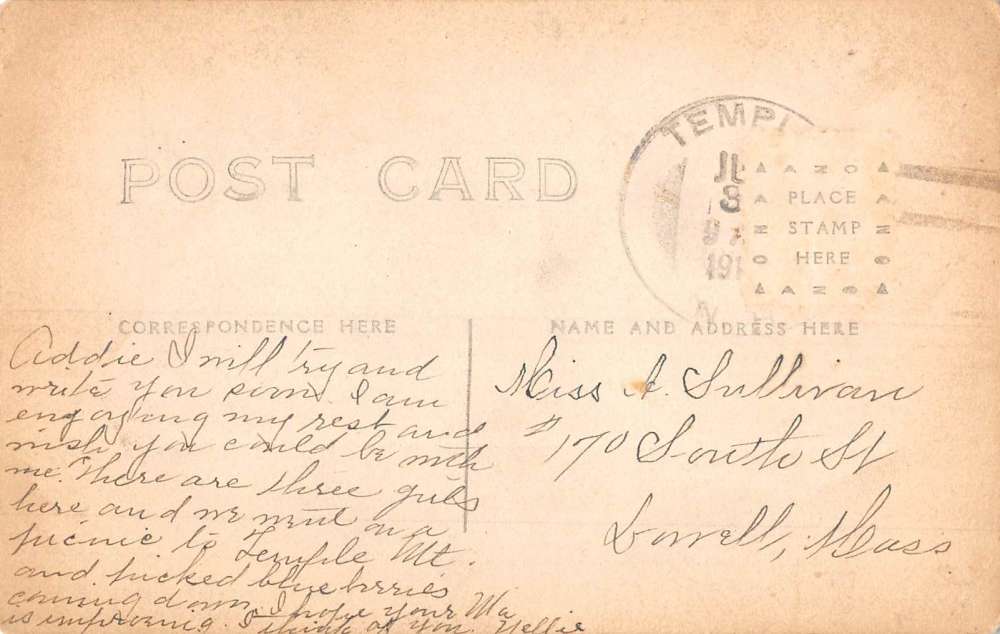 POST CARD
TEMPL
JU
8
9 A
191
N. H.
PLACE
STAMP
HERE
CORRESPONDENCE HERE
NAME AND ADDRESS HERE
Addie I will try and
write you soon. I am
enjoying my rest and
wish you could be with
me. There are three girls
here and we went on a
picnic to Temple Mt.
and picked blueberries
coming down. I hope your Ma
is improving. I think of you. Nellie
Miss A. Sullivan
# 170 South St
Lowell, Mass